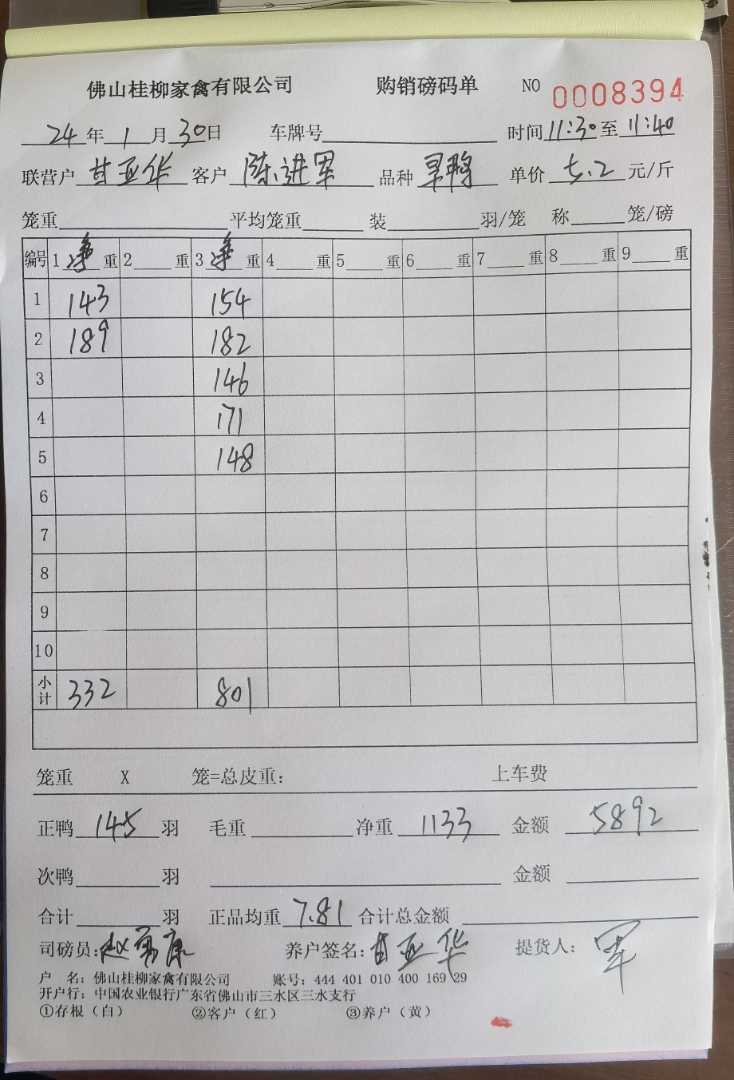 佛山桂柳家禽有限公司 购销磅码单 NO 0008394
24年 1月 30日 车牌号 时间 11:30 至 11:40
联营户 甘亚华 客户 陈进军 品种 旱鸭 单价 5.2 元/斤
笼重 平均笼重 装 羽/笼 称 笼/磅
编号 1 净 重 2 重 3 净 重 4 重 5 重 6 重 7 重 8 重 9 重
1 143 154
2 189 182
3 146
4 171
5 148
6
7
8
9
10
小计 332 801
笼重 X 笼=总皮重: 上车费
正鸭 145 羽 毛重 净重 1133 金额 5892
次鸭 羽 金额
合计 羽 正品均重 7.81 合计总金额
司磅员: 养户签名: 甘亚华 提货人: 军
户 名: 佛山桂柳家禽有限公司 账号: 444 401 010 400 169 29
开户行: 中国农业银行广东省佛山市三水区三水支行
①存根(白) ②客户(红) ③养户(黄)